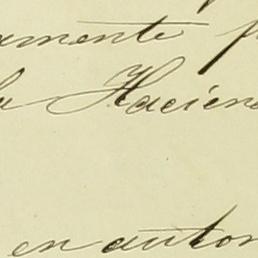 amente
la Hacien
en auton